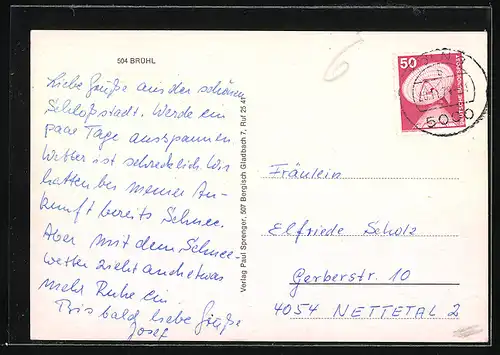 504 BRÜHL
Liebe Grüße aus der schönen
Schloßstadt. Werde ein
paar Tage ausspannen
Wetter ist schrecklich. Wir
hatten bei meiner An-
kunft bereits Schnee.
Aber mit dem Schnee-
wetter zieht auch etwas
mehr Ruhe ein
Bis bald liebe Grüße
Josef
Verlag Paul Sprenger, 507 Bergisch Gladbach 7, Ruf 25 41
6
50
DEUTSCHE BUNDESPOST
Fräulein
Elfriede Scholz
Gerberstr. 10
4054 NETTETAL 2